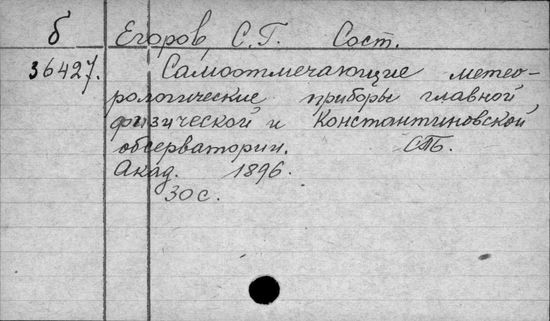 б Егоров, С.Г. Сост.
36427. Самоотмечающие метео-
рологические приборы главной
физической и Константиновской
обсерватории. СПБ.
Акад. 1896.
30 с.